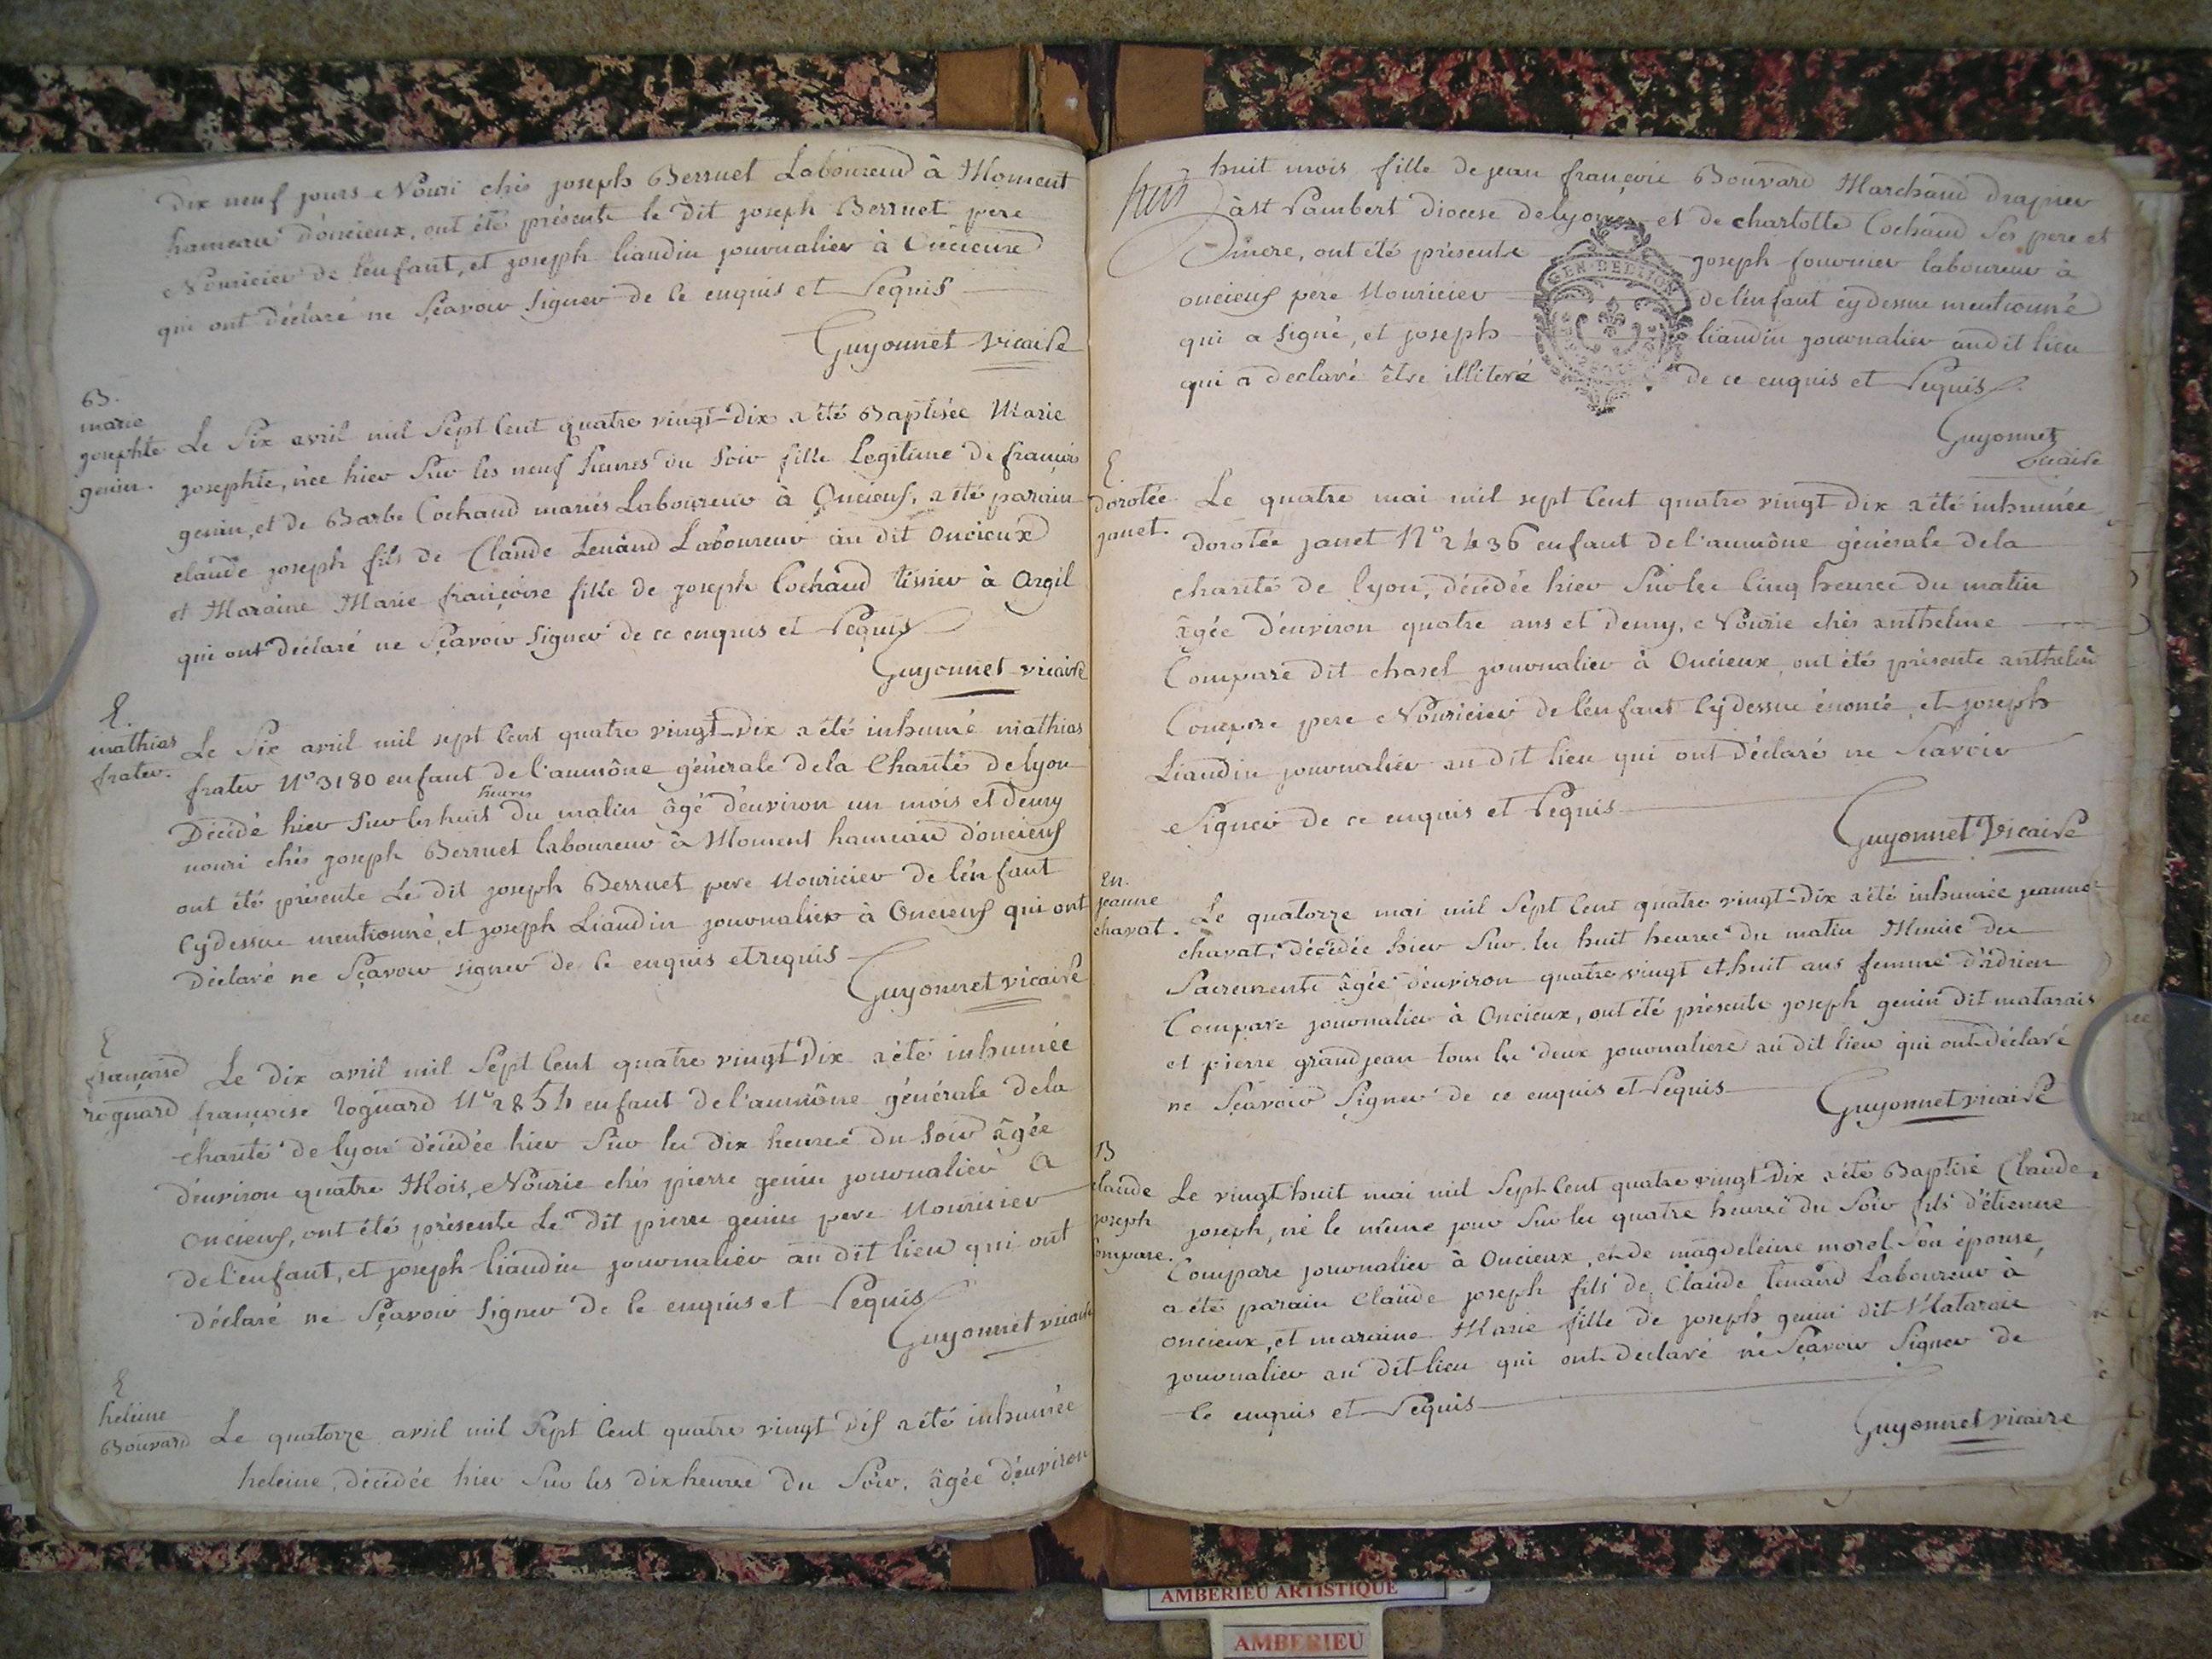 dix neuf jours Nouri chés joseph Berruet Laboureur à Moment
hameau d'oncieux, ont été présents le dit joseph Berruet pere
Nouricier de l'enfant, et joseph liaudin journalier à Oncieux
qui ont déclaré ne Sçavoir Signer de ce enquis et Requis
Guyonnet vicaire
B.
marie
josephte
genin.
Le Six avril mil Sept Cent quatre vingt-Dix a été Baptisée Marie
josephte, née hier Sur les neuf heures du Soir fille Legitime de françois
genin, et de Barbe Cochaud mariés Laboureur à Oncieux, a été parain
claude joseph fils de Claude Tenand Laboureur au dit oncieux
et Maraine Marie françoise fille de joseph Cochaud tissier à Argil
qui ont déclaré ne Sçavoir Signer de ce enquis et Requis
Guyonnet vicaire
E.
mathias
frater.
Le Six avril mil sept Cent quatre vingt-Dix a été inhumé mathias
frater N° 3180 enfant de l'aumône générale dela Charité de lyon
heures
Décédé hier Sur les huit du matin âgé d'environ un mois et demy
nouri chés joseph Berruet laboureur à Moment hameau d'oncieux
ont été présents Le dit joseph Berruet pere Nouricier de l'enfant
Cydessus mentionné, et joseph Liaudin journalier à Oncieux qui ont
Déclaré ne Sçavoir signer de ce enquis et requis
Guyonnet vicaire
E
françoise
roguard
Le Dix avril mil Sept Cent quatre vingt Dix a été inhumée
françoise Roguard N° 2854 enfant de l'aumône générale dela
charité de lyon décédée hier Sur les Dix heures du Soir âgée
d'environ quatre Mois, Nourie chés pierre genin journalier à
Oncieux, ont été présents Le dit pierre genin pere Nouricier
de l'enfant, et joseph liaudin journalier au dit lieu qui ont
déclaré ne Sçavoir Signer de Ce enquis et Requis
Guyonnet vicaire
E
heleine
Bouvard
Le quatorze avril mil Sept Cent quatre vingt dix a été inhumée
heleine, décédée hier Sur les dix heures du Soir, âgée d'environ
huit mois fille de jean françois Bouvard Marchand drapier
à st Rambert diocese de lyon et de charlotte Cochaud Ses pere et
mere, ont été présents joseph fournier laboureur à
oncieux pere Nouricier de l'enfant cydessus mentionné
qui a signé, et joseph liaudin journalier audit lieu
qui a declaré être illiteré de ce enquis et Requis
GEN. DE LYON
Guyonnet
vicaire
E.
dorotée
janet.
Le quatre mai mil sept Cent quatre vingt dix a été inhumée
dorotée janet N° 2436 enfant de l'aumône générale dela
charité de lyon, décédée hier Sur les Cinq heures du matin
âgée d'environ quatre ans et demy, Nourie chés anthelme
Compare dit chasel journalier à Oncieux, ont été présents anthelme
Compare pere Nouricier de l'enfant Cydessus énoncé, et joseph
Liaudin journalier au dit lieu qui ont déclaré ne Sçavoir
Signer de ce enquis et Requis
Guyonnet Vicaire
En.
jeanne
chavat.
Le quatorze mai mil Sept Cent quatre vingt-Dix a été inhumée jeanne
chavat, décédée hier Sur les huit heures du matin Munie des
Sacrements âgée d'environ quatre vingt et huit ans femme d'adrien
Compare journalier à Oncieux, ont été présents joseph genin dit matarais
et pierre grandjean tous les deux journaliers au dit lieu qui ont déclaré
ne Sçavoir Signer de ce enquis et Requis
Guyonnet vicaire
B
claude
joseph
Compare.
Le vingt huit mai mil Sept Cent quatre vingt Dix a été Baptisé Claude
joseph, né le même jour Sur les quatre heures du Soir fils d'étienne
Compare journalier à Oncieux, et de magdeleine morel Son épouse,
a été parain Claude joseph fils de Claude Tenand Laboureur à
oncieux, et maraine Marie fille de joseph genin dit Matarais
journalier au dit lieu qui ont declaré ne Sçavoir Signer de
Ce enquis et Requis
Guyonnet vicaire
AMBERIEU ARTISTIQUE
AMBERIEU